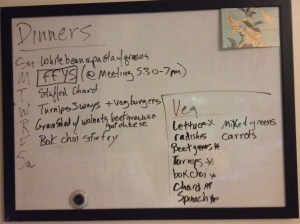 Dinners
Su White bean & pasta w/ greens
M FFYS (@ Meeting 530-7pm)
T Stuffed Chard
W Turnips 3 ways + Veg burgers
R Grain salad w/ walnuts, beet greens, goat cheese
F Bok choi stir fry
Sa
Veg
Lettuce* Mixed greens
radishes carrots
Beet greens*
Turnips*
bok choi*
Chard*
Spinach*